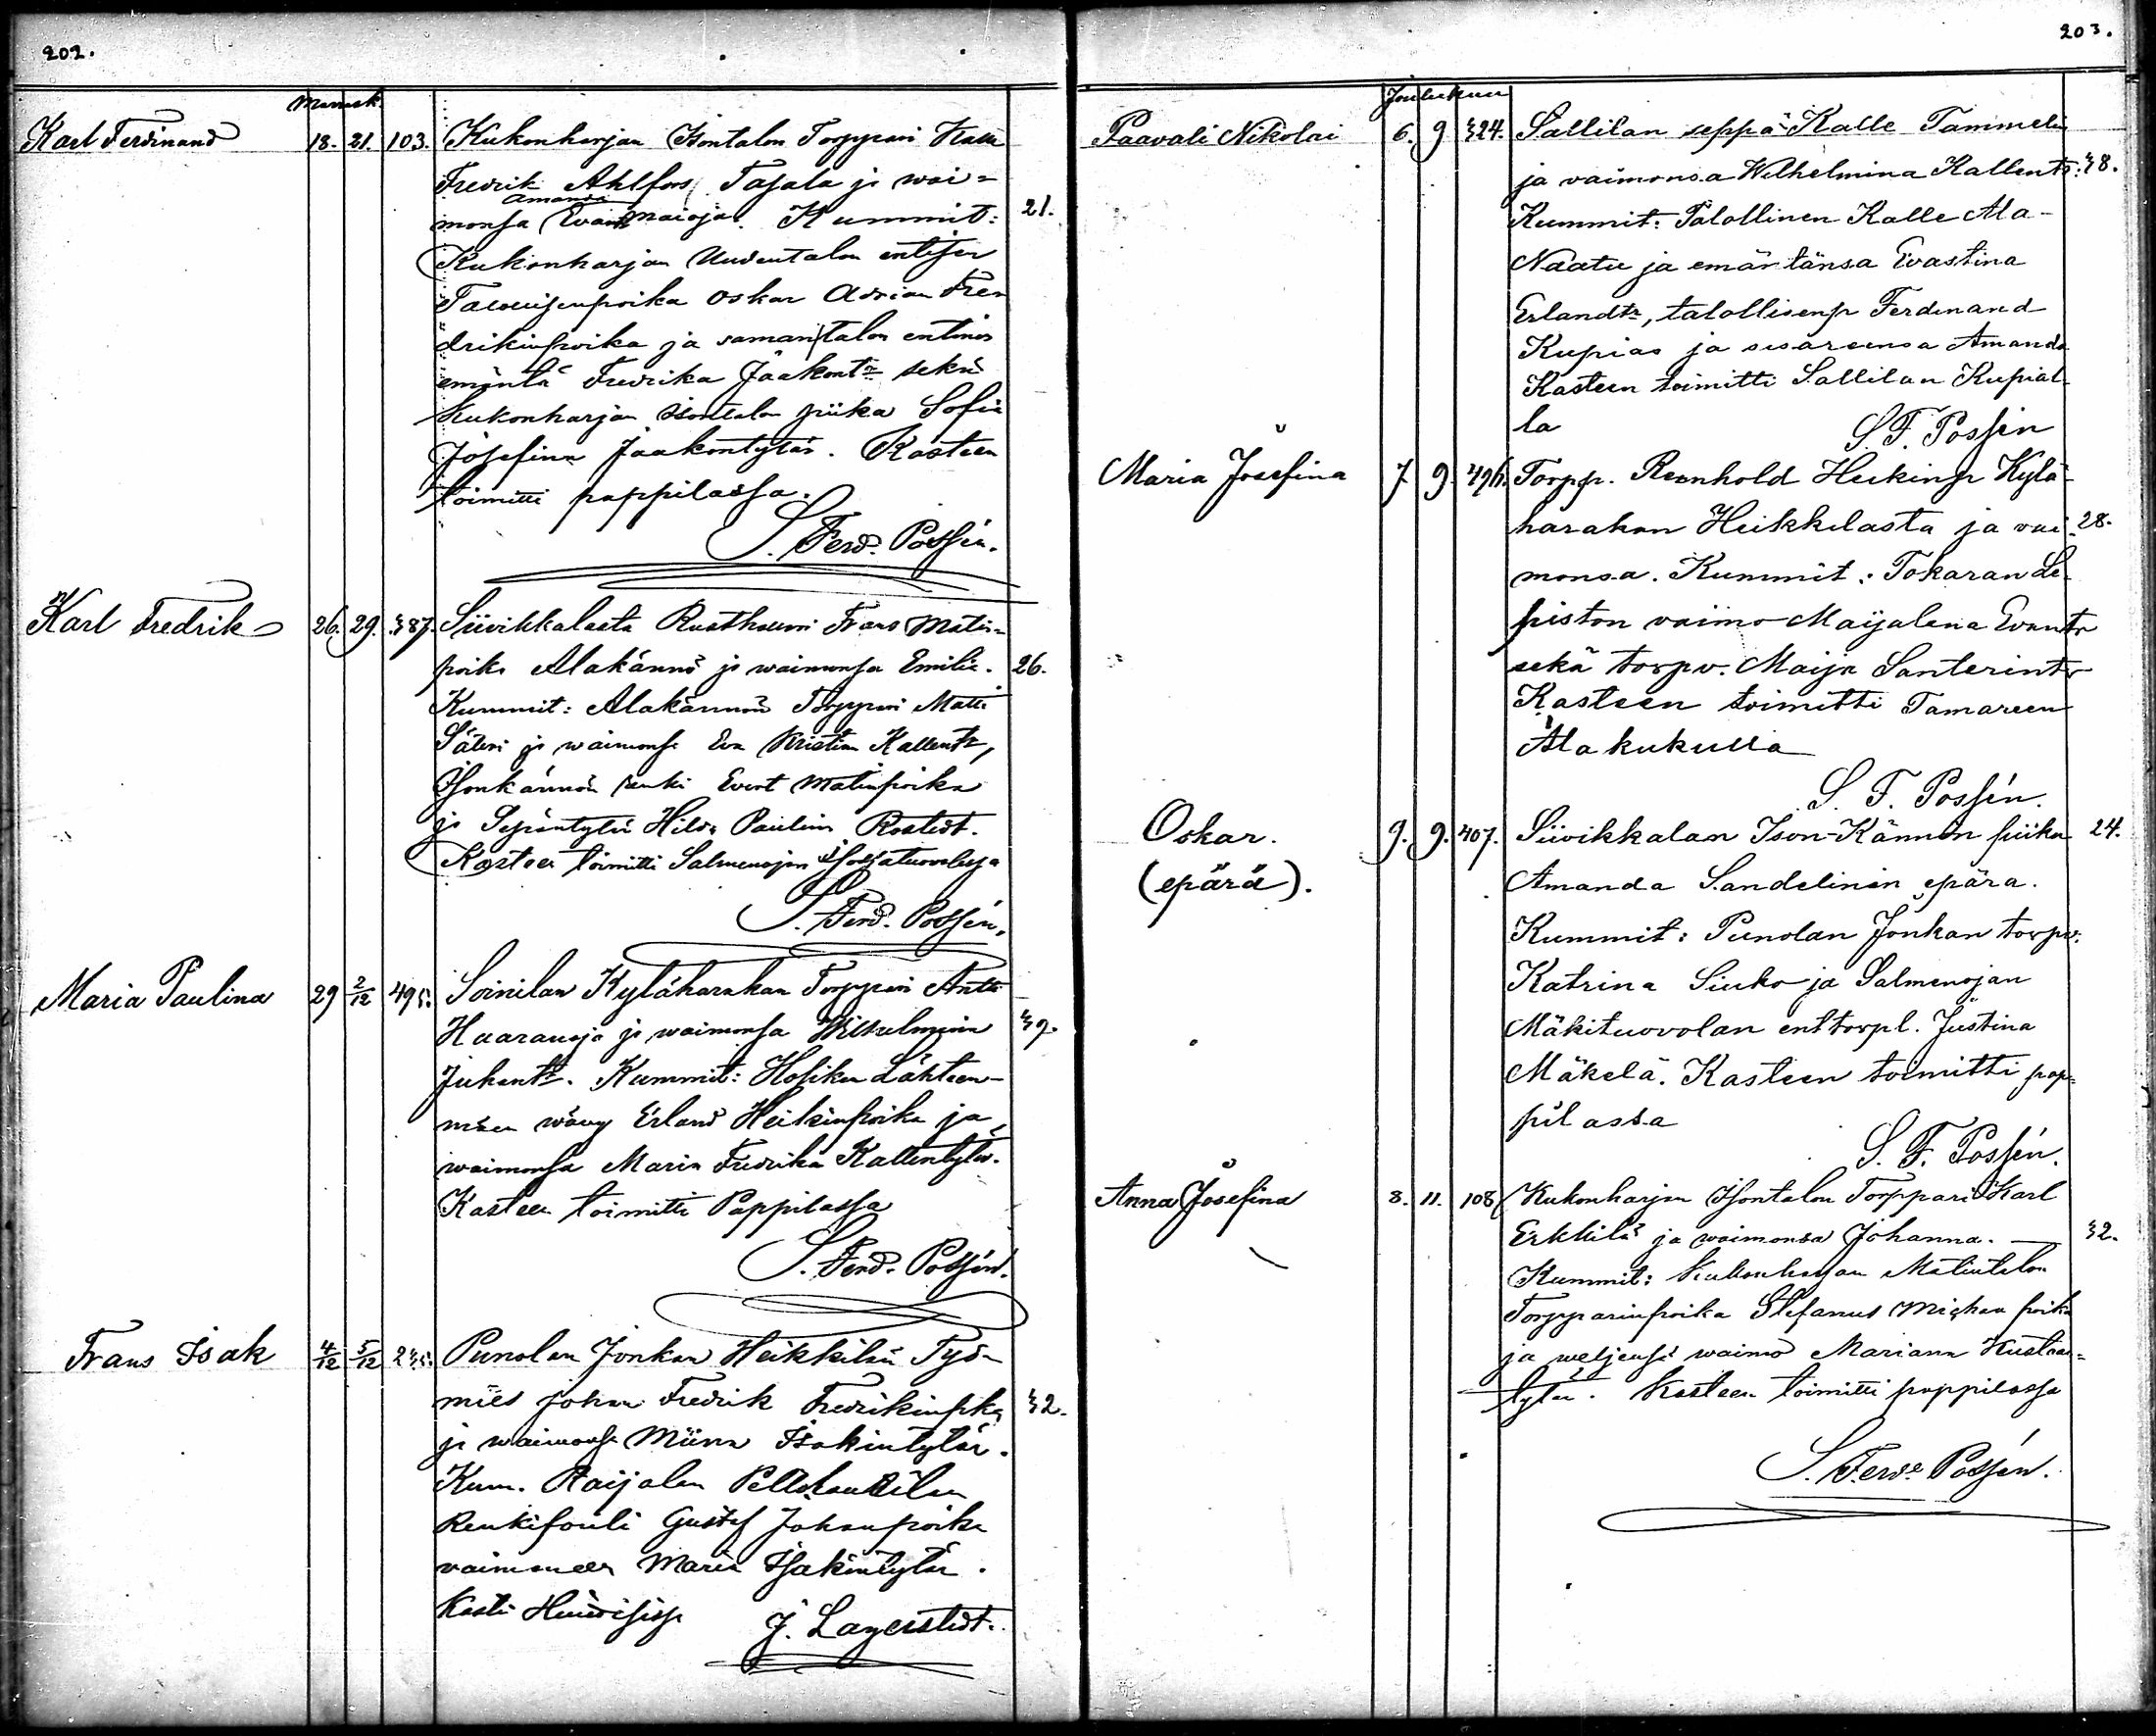 202.
Marrask.
Karl Ferdinand 18. 21. 103. Kukonharjan Isontalon Torppari Kalle
Fredrik Ahlfors Tasala ja wai=
Amanda
monsa Evan Maioja. Kummit: 21.
Kukonharjan Uudentalon entisen
poika Oskar Adrian Fre
drikinpoika ja saman talon entinen
emäntä Fredrika Jaakontr sekä
Kukonharjan Isontalon piika Sofia
Josefina Jaakontytär. Kasteen
toimitti pappilassa.
S. Ferd. Possén.
Karl Fredrik 26. 29. 387. Siivikkalasta Rusthaari Frans Matin=
poika Alakännö ja waimonsa Emilia. 26.
Kummit: Alakännön Torppari Matti
Säteri ja waimonsa Eva Kristina Kallentr,
Isonkännön renki Evert Matinpoika
ja Sepäntytär Hilda Paulina Rostedt.
Kasteen toimitti Salmenojan
S. Ferd. Possén.
Maria Paulina 29 2/12 495. Soinilan Kyläharakan Torppari Antti
Haaranoja ja waimonsa Wilhelmiina 39.
Juhantr. Kummit: Hosikan Lähteen-
mäen wäwy Erland Heikinpoika ja
waimonsa Maria Fredrika Kallentytär.
Kasteen toimitti Pappilassa
S. Ferd. Possén.
Frans Isak 4/12 5/12 235. Punolan Jonkan Heikkilän Työ-
mies Johan Fredrik Fredrikinpka 32.
ja waimonsa Miina Isakintytär.
Kum. Raijalan
Renkifouti Gustaf Johanpoika
vaimoneen Maria Isakintytär.
Kasti
J. Lagerstedt.
203.
Joulukuu
Paavali Nikolai 6. 9 324. Sallilan seppä Kalle Tammelin
ja vaimonsa Wilhelmina Kallentr: 38.
Kummit: Talollinen Kalle Ala-
Naatu ja emäntänsä Evastina
Erlandtr, talollisenp Ferdinand
Kupias ja sisarensa Amanda
Kasteen toimitti Sallilan Kupial-
la
S. F. Possén
Maria Josefina 7 9. 496. Torpp. Reinhold Heikinp Kylä-
harakan Heikkilästa ja vai- 28.
monsa. Kummit: Tokaran Le-
piston vaimo Maijalena Evantr
sekä torpv. Maija Santerintr
Kasteen toimitti Tamareen
Alakukulla
S. F. Possén.
Oskar. 9. 9. 407. Siivikkalan Ison-Kännön piika 24.
(epärä). Amanda Sandelinin epärä.
Kummit: Punolan Jonkan torpv.
Katrina Siuko ja Salmenojan
Mäkituovolan enttorpl. Justina
Mäkelä. Kasteen toimitti pap=
pilassa
S. F. Possén.
Anna Josefina 8. 11. 108 Kukonharjan Isontalon Torppari Karl
Erkkilä ja waimonsa Johanna. 32.
Kummit: Kukonharjan Matintalon
Torpparinpoika Stefanus Mickan poika
ja weljensä waimo Mariana Kustaan=
tytär. Kasteen toimitti pappilassa
S. Ferd. Possén.